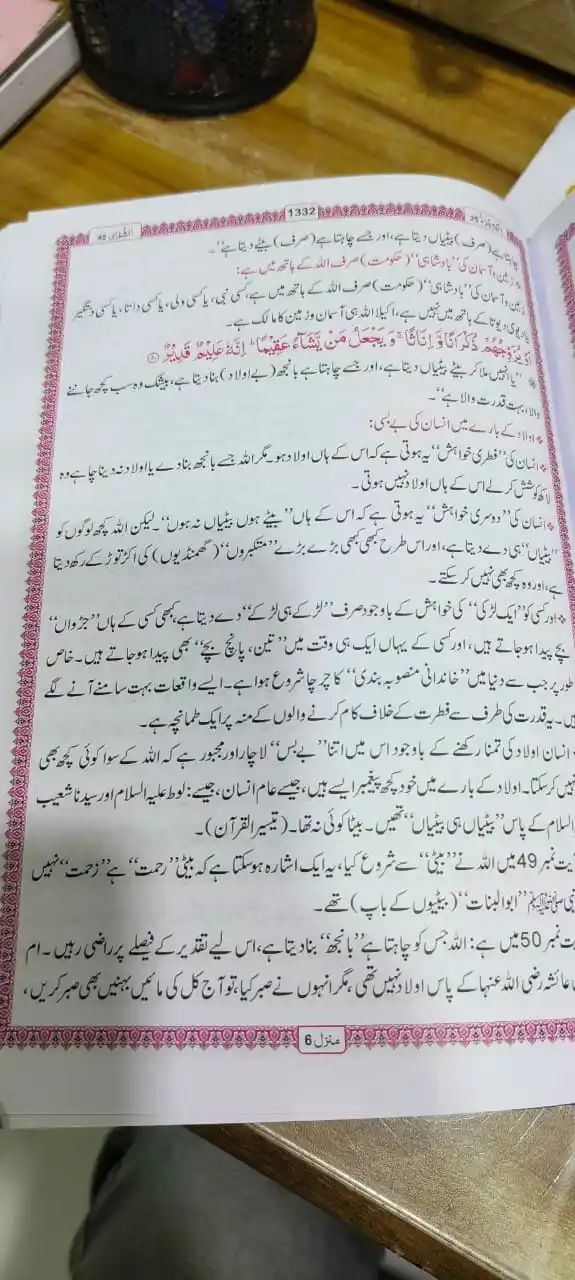 1332
چاہتا ہے (صرف) بیٹیاں دیتا ہے، اور جسے چاہتا ہے (صرف) بیٹے دیتا ہے“۔
زمین و آسمان کی ”بادشاہی“ (حکومت) صرف اللہ کے ہاتھ میں ہے:
زمین و آسمان کی ”بادشاہی“ (حکومت) صرف اللہ کے ہاتھ میں ہے، کسی نبی، یا کسی ولی، یا کسی داتا، یا کسی دستگیر
دیوتا کے ہاتھ میں نہیں ہے، اکیلا اللہ ہی آسمان و زمین کا مالک ہے۔
اَوْ یُزَوِّجُهُمْ ذُكْرَانًا وَّ اِنَاثًا ۚ وَ یَجْعَلُ مَنْ یَّشَآءُ عَقِیْمًا ؕ اِنَّهٗ عَلِیْمٌ قَدِیْرٌ
”یا انہیں ملا کر بیٹے بیٹیاں دیتا ہے، اور جسے چاہتا ہے بانجھ (بے اولاد) بنا دیتا ہے، بیشک وہ سب کچھ جاننے
والا، بہت قدرت والا ہے“۔
اولاد کے بارے میں انسان کی بے بسی:
انسان کی ”فطری خواہش“ یہ ہوتی ہے کہ اس کے ہاں اولاد ہو۔ مگر اللہ جسے بانجھ بنا دے یا اولاد نہ دینا چاہے وہ
لاکھ کوشش کر لے اس کے ہاں اولاد نہیں ہوتی۔
انسان کی ”دوسری خواہش“ یہ ہوتی ہے کہ اس کے ہاں ”بیٹے ہوں بیٹیاں نہ ہوں“۔ لیکن اللہ کچھ لوگوں کو
”بیٹیاں“ ہی دے دیتا ہے، اور اس طرح کبھی کبھی بڑے بڑے ”متکبروں“ (گھمنڈیوں) کی اکڑ توڑ کے رکھ دیتا
ہے، اور وہ کچھ بھی نہیں کر سکتے۔
اور کسی کو ”ایک لڑکی“ کی خواہش کے باوجود صرف ”لڑکے ہی لڑکے“ دے دیتا ہے، کبھی کسی کے ہاں ”جڑواں“
بچے پیدا ہو جاتے ہیں، اور کسی کے یہاں ایک ہی وقت میں ”تین، پانچ بچے“ بھی پیدا ہو جاتے ہیں۔ خاص
طور پر جب سے دنیا میں ”خاندانی منصوبہ بندی“ کا چرچا شروع ہوا ہے۔ ایسے واقعات بہت سامنے آنے لگے
ہیں۔ یہ قدرت کی طرف سے فطرت کے خلاف کام کرنے والوں کے منہ پر ایک طمانچہ ہے۔
انسان اولاد کی تمنا رکھنے کے باوجود اس میں اتنا ”بے بس“ لاچار اور مجبور ہے کہ اللہ کے سوا کوئی کچھ بھی
نہیں کر سکتا۔ اولاد کے بارے میں خود کچھ پیغمبر ایسے ہیں، جیسے عام انسان، جیسے: لوط علیہ السلام اور سیدنا شعیب
السلام کے پاس ”بیٹیاں ہی بیٹیاں“ تھیں۔ بیٹا کوئی نہ تھا۔ (تیسیر القرآن)۔
یت نمبر 49 میں اللہ نے ”بیٹی“ سے شروع کیا، یہ ایک اشارہ ہو سکتا ہے کہ بیٹی ”رحمت“ ہے ”زحمت“ نہیں
نبی ﷺ ”ابو البنات“ (بیٹیوں کے باپ) تھے۔
یت نمبر 50 میں ہے: اللہ جس کو چاہتا ہے ”بانجھ“ بنا دیتا ہے، اس لیے تقدیر کے فیصلے پر راضی رہیں۔ ام
عائشہ رضی اللہ عنہا کے پاس اولاد نہیں تھی، مگر انہوں نے صبر کیا، تو آج کل کی مائیں بہنیں بھی صبر کریں،
منزل 6